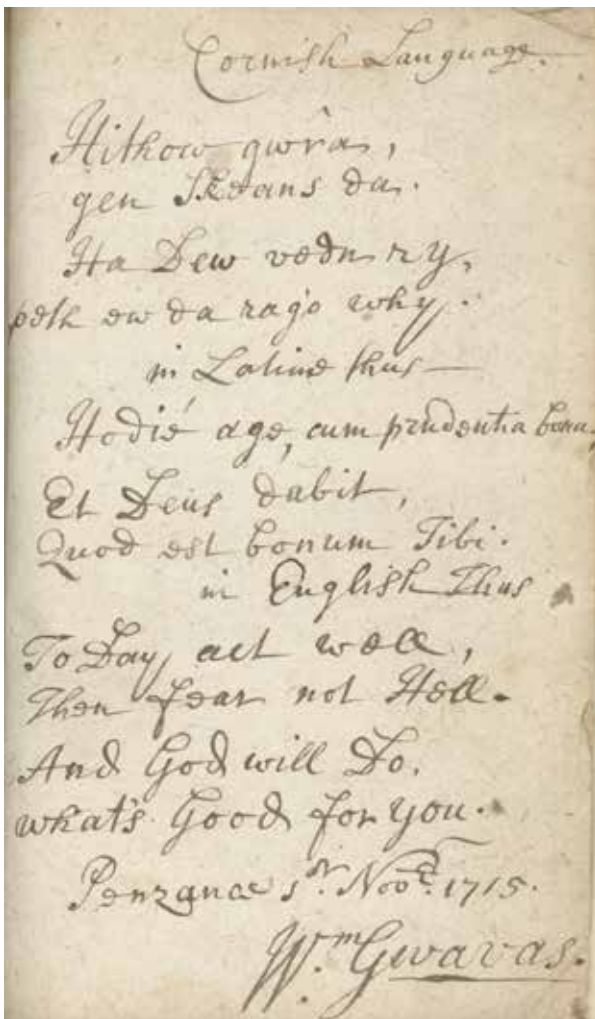 Cornish Language.
Hithow gwra,
gen Skeans da.
Ha Dew vedn ry,
peth ew da rago why.
in Latine thus —
Hodié age, cum prudentia bona,
Et Deus dabit,
Quod est bonum Tibi.
in English Thus
To Day act well,
Then fear not Hell.
And God will Do.
what's Good for you.
Penzance Novr. 1715.
Wm. Gwavas.